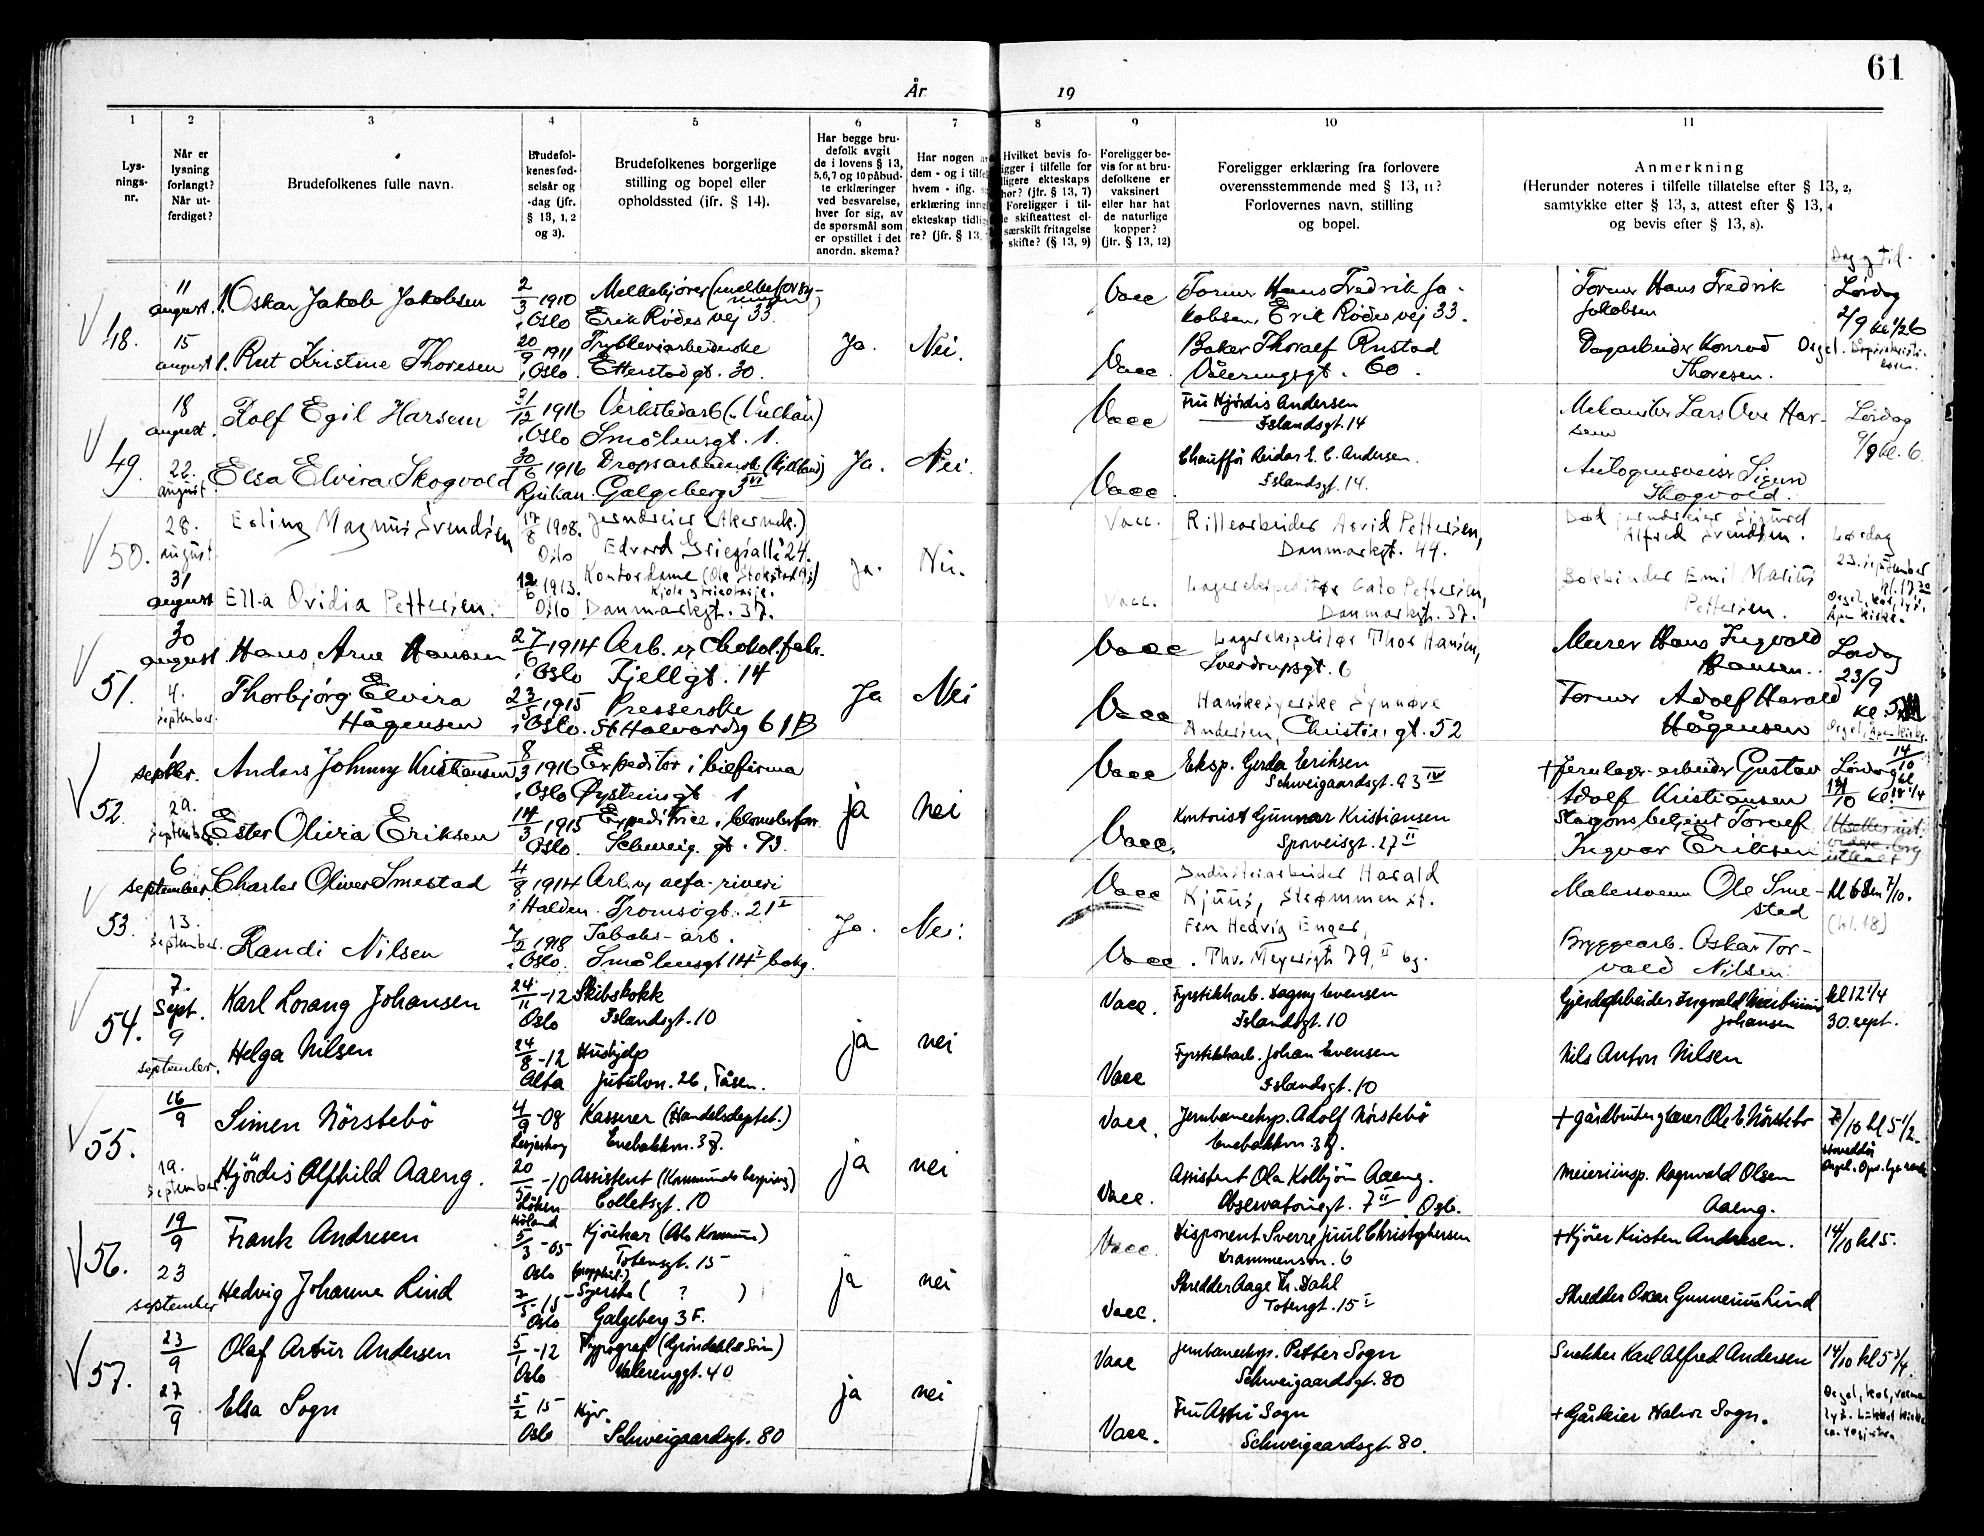 61
År 19
1 2 3 4 5 6 7 8 9 10 11
Lys-
nings-
nr.
Når er
lysning
forlangt?
Når ut-
ferdiget?
Brudefolkenes fulle navn.
Brudefol-
kenes fød-
selsår og
-dag (jfr.
§ 13, 1, 2
og 3).
Brudefolkenes borgerlige
stilling og bopel eller
opholdssted (jfr. § 14).
Har begge bru-
defolk avgit
de i lovens § 13,
5,6,7 og 10 påbud-
te erklæringer
ved besvarelse,
hver for sig, av
de spørsmål som
er opstillet i det
anordn. skema?
Har nogen
dem - og i tilfel
hvem - iflg.
erklæring inng
ekteskap tidli
re? (jfr. § 13,
Hvilket bevis fo-
ligger i tilfelle for
ligere ekteskaps
hør? (jfr. § 13, 7)
Foreligger i til-
le skifteattest el-
særskilt fritagelse
skifte? (§ 13, 9)
Foreligger be-
vis for at bru-
defolkene er
vaksinert
eller har hat
de naturlige
kopper?
(jfr. § 13, 12)
Foreligger erklæring fra forlovere
overensstemmende med § 13, 11?
Forlovernes navn, stilling
og bopel.
Anmerkning
(Herunder noteres i tilfelle tillatelse efter § 13, 2,
samtykke efter § 13, 3, attest efter § 13, 4
og bevis efter § 13, 8).
Dag og tid.
48.
11 august. Oskar Jakob Jakobsen 2/3 1910 i Oslo
Melkekjører
Erik Rødes vej 33.
Vacc Former Hans Fredrik Ja-
kobsen, Erik Rødes vej 33.
Former Hans Fredrik
Jakobsen
Lørdag
2/9 kl 1/2 6
15 august Rut Kristine Thoresen 20/9 1911 i Oslo.
Etterstadgt. 30.
Ja. Nei.
Vacc. Baker Thoralf Rustad
Vålerengsgt. 60.
Dagarbeider Konrad
Thoresen.
Orgel.
49.
18 august. Rolf Egil Harsem 31/12 1916 i Oslo
Verkstedarb (Vulkan)
Smålensgt. 1.
Vacc Fru Hjördis Andersen
Islandsgt. 14
Mekaniker Lars Ove Har-
sem
Lørdag
9/9 kl. 6.
22. august Elsa Elvira Skogvold 30/6 1916 Rjukan.
Galgeberg 3 VI
Ja. Nei.
Vacc. Chaufför Reidar E. C. Andersen.
Islandsgt. 14.
Autogensveiser Sigurd
Skogvold.
50.
28. august Erling Magnus Svendsen 17/8 1908. Oslo
Jerndreier (Akermek.)
Edvard Griegsallé 24.
Vacc. Rillearbeider Astrid Pettersen,
Danmarksgt. 44.
Død jerndreier Sigurd
Alfred Svendsen.
Lørdag
23. september
kl. 17.30
31 august Ella Ovidia Pettersen. 12/6 1913. Oslo
Kontordame
Danmarksgt. 37.
Ja. Nei.
Vacc. Lagerekspeditør Cato Pettersen,
Danmarksgt. 37.
Bokbinder Emil Marius
Pettersen.
51.
30 august Hans Arne Hansen 27/6 1914 i Oslo
Arb. v Chokol.fabr.
Fjellgt. 14
Vacc Lagerekspeditør Thor Hansen,
Sverdrupsgt. 6
Murer Hans Ingvald
Hansen.
Lørdag
23/9
4. september. Thorbjørg Elvira
Hågensen 23/5 1915 i Oslo.
Presserske
St Halvardsg 61 B
Ja Nei
Vacc Hanskesyerske Synnøve
Andersen, Christies gt. 52
Former Adolf Harald
Hågensen
52.
1 septbr. Anders Johnny Kristiansen 8/3 1916 i Oslo
Expeditør i bilfirma
Øysteinsgt 1
Vacc Eksp. Gerda Eriksen
Schweigaardsgt. 93 IV
+ Jernlager-arbeider Gustav
Adolf Kristiansen
Lørdag
14/10 kl.
29. september Ester Olivia Eriksen 14/3 1915 Oslo.
Expeditrice i blomsterforr.
Schweig. gt. 93.
ja nei
Vacc. Kontorist Gunnar Kristiansen
Sporveisgt. 27 II
Slagonsbetjent Toralf
Ingvar Eriksen
53.
6 september. Charles Oliver Smestad 4/8 1914 i Halden.
Tromsögt. 21 I
Vacc Industriarbeider Harald
Kjuus, Strømmen st.
Malersvenn Ole Sme-
stad
kl 6 den 7/10.
(kl. 18)
13. september. Randi Nilsen 7/2 1918 i Oslo.
Tobaks-arb.
Smålensgt 14 I bakg.
Ja. Nei.
Vacc. Frk Hedvig Enger,
Thv. Meyersgt 79, II bg.
Bryggearb. Oskar Tor-
vald Nilsen
54.
7. Sept. Karl Lorang Johansen 24/11 -12 Oslo
Skibskokk
Islandsgt. 10
Vacc. Fyrstikkarb. Dagny Evensen
Islandsgt. 10
Gjerdearbeider Ingvald
Johansen
kl 12 1/4
30. sept.
9 september. Helga Nilsen 24/8 -12 Alta
Hushjelp
Jutulvn. 26, Tåsen.
ja nei
Vacc Fyrstikkarb. Johan Evensen
Islandsgt. 10
Nils Anton Nilsen
55.
16/9 Simen Nörstebö 4/9 -08
Kasserer (Handelsdeptet.)
Enebakkvn. 37.
Vacc. Jernbaneeksp. Adolf Nörstebö
Enebakkvn 37.
+ gårdbruker glaser Ole E. Nörstebo
7/10 kl 5 1/2.
19. september Hjördis Alfhild Aaeng. 20/5 -10 Löken Höland
Assistent
Colletsgt. 10
ja nei
Vacc. Assistent Ola Kolbjön Aaeng.
Observatoriegt. 7 II Oslo.
Meieriinsp. Ragnvald Olsen
Aaeng.
56.
19/9 Frank Andresen 5/3 -05 Oslo
Kjörekar (Oslo Kommune)
Totengt. 15
Vacc. Disponent Sverre Juul Christophersen
Drammensvn. 6
+ Kjörer Kristen Andresen.
14/10 kl 5.
23 september Hedvig Johanne Lind 7/5 -15 Oslo
Syerske ( ? )
Galgeberg 3 F.
ja nei
Vacc. Skredder Aage Th. Dahl
Totengt. 15 I
Skredder Oskar Gunnerius Lind
57.
23/9 Olaf Artur Andersen 5/1 -12 Oslo
Typograf (Gröndahl & Sön)
Valerenggt. 40
Vacc Jernbaneeksp. Petter Sogn
Schweigaardsgt. 80
Snekker Karl Alfred Andersen
14/10 kl 5 3/4.
27/9 Elsa Sogn 5/2 15 Oslo
Schweigaardsgt. 80
ja nei
Vacc. Fru Astri Sogn
Schweigaardsgt. 80.
+ Gårdeier Halvor Sogn.